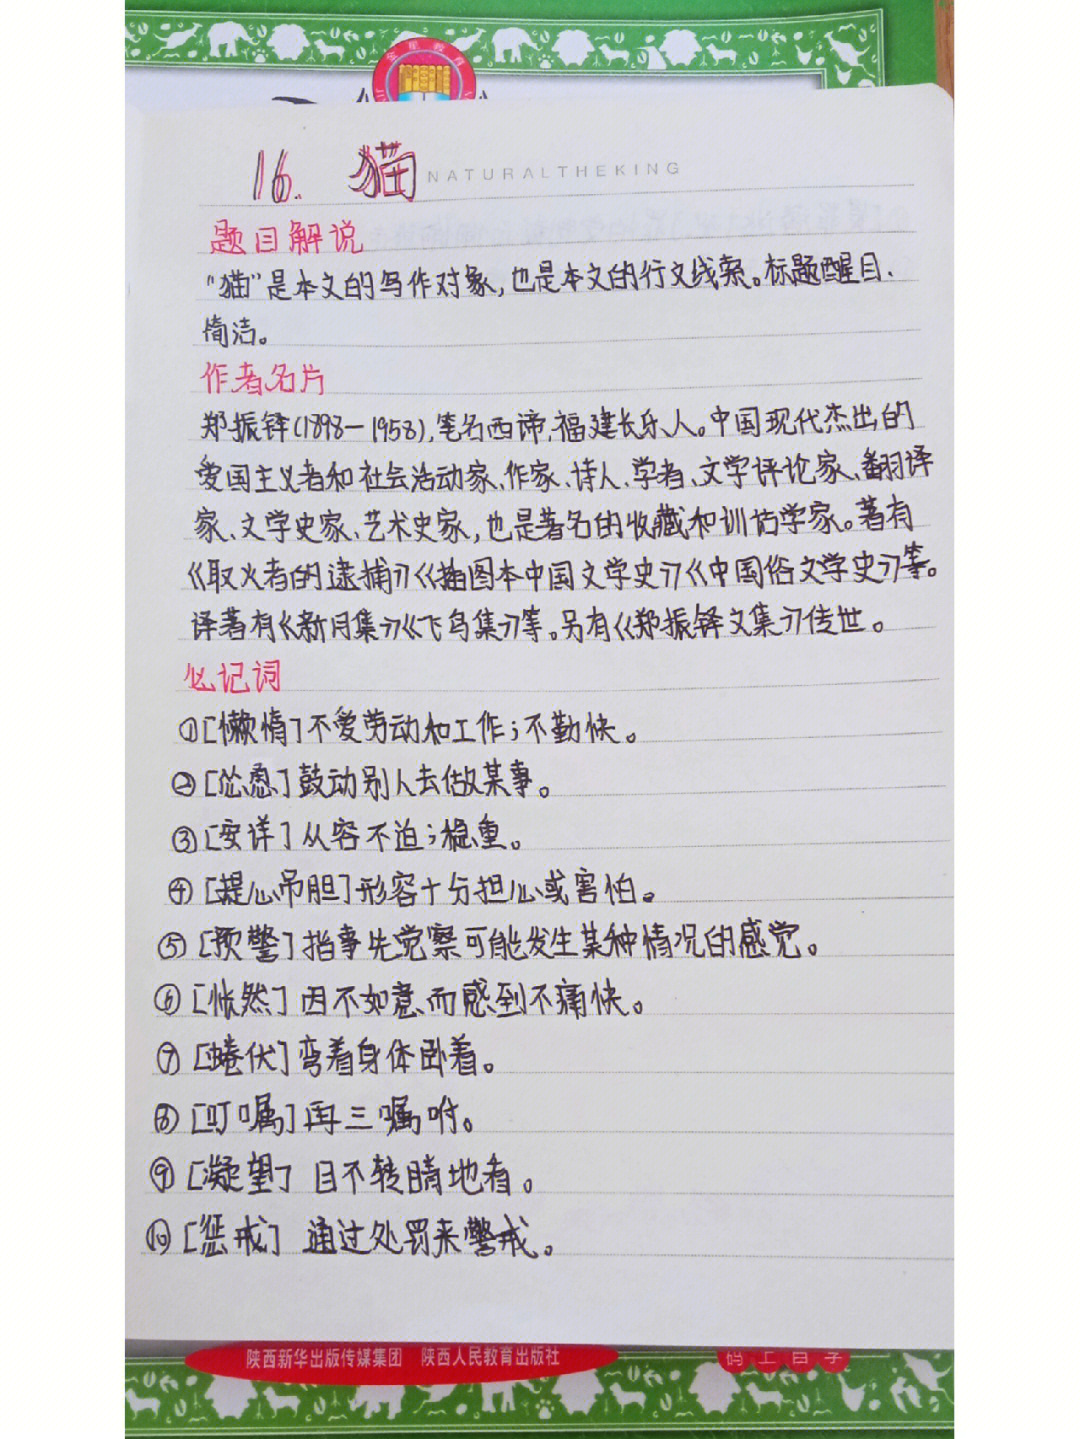 金星教育
16. 猫
NATURALTHEKING
题目解说
“猫”是本文的写作对象,也是本文的行文线索。标题醒目、
简洁。
作者名片
郑振铎(1898—1958),笔名西谛,福建长乐人。中国现代杰出的
爱国主义者和社会活动家、作家、诗人、学者、文学评论家、翻译
家、文学史家、艺术史家,也是著名的收藏和训诂学家。著有
《取火者的逮捕》《插图本中国文学史》《中国俗文学史》等。
译著有《新月集》《飞鸟集》等。另有《郑振铎文集》传世。
必记词
①[懒惰]不爱劳动和工作;不勤快。
②[怂恿]鼓动别人去做某事。
③[安详]从容不迫;稳重。
④[提心吊胆]形容十分担心或害怕。
⑤[预警]指事先觉察可能发生某种情况的感觉。
⑥[怅然]因不如意而感到不痛快。
⑦[蜷伏]弯着身体卧着。
⑧[叮嘱]再三嘱咐。
⑨[凝望]目不转睛地看。
⑩[惩戒]通过处罚来警戒。
陕西新华出版传媒集团 陕西人民教育出版社
码上自学